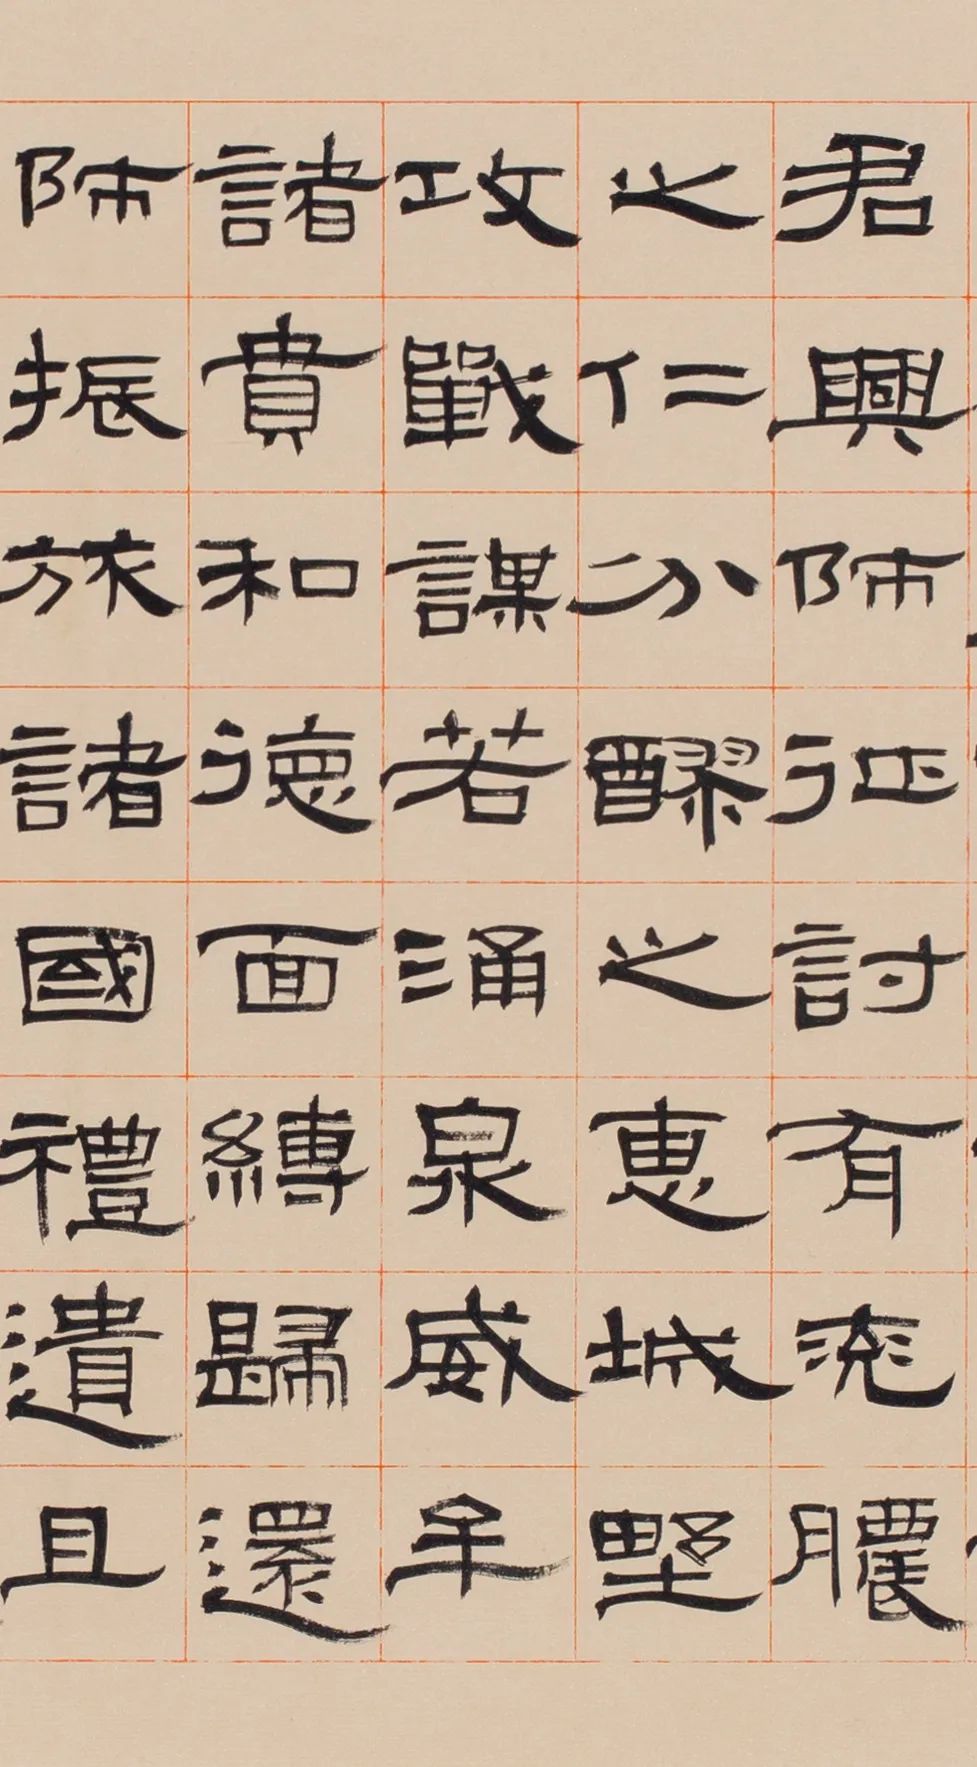 君興師征討有膿
之仁分醪之惠城野
攻戰謀若涌泉威牟
諸賁和德面縛歸還
師振旅諸國禮遺且